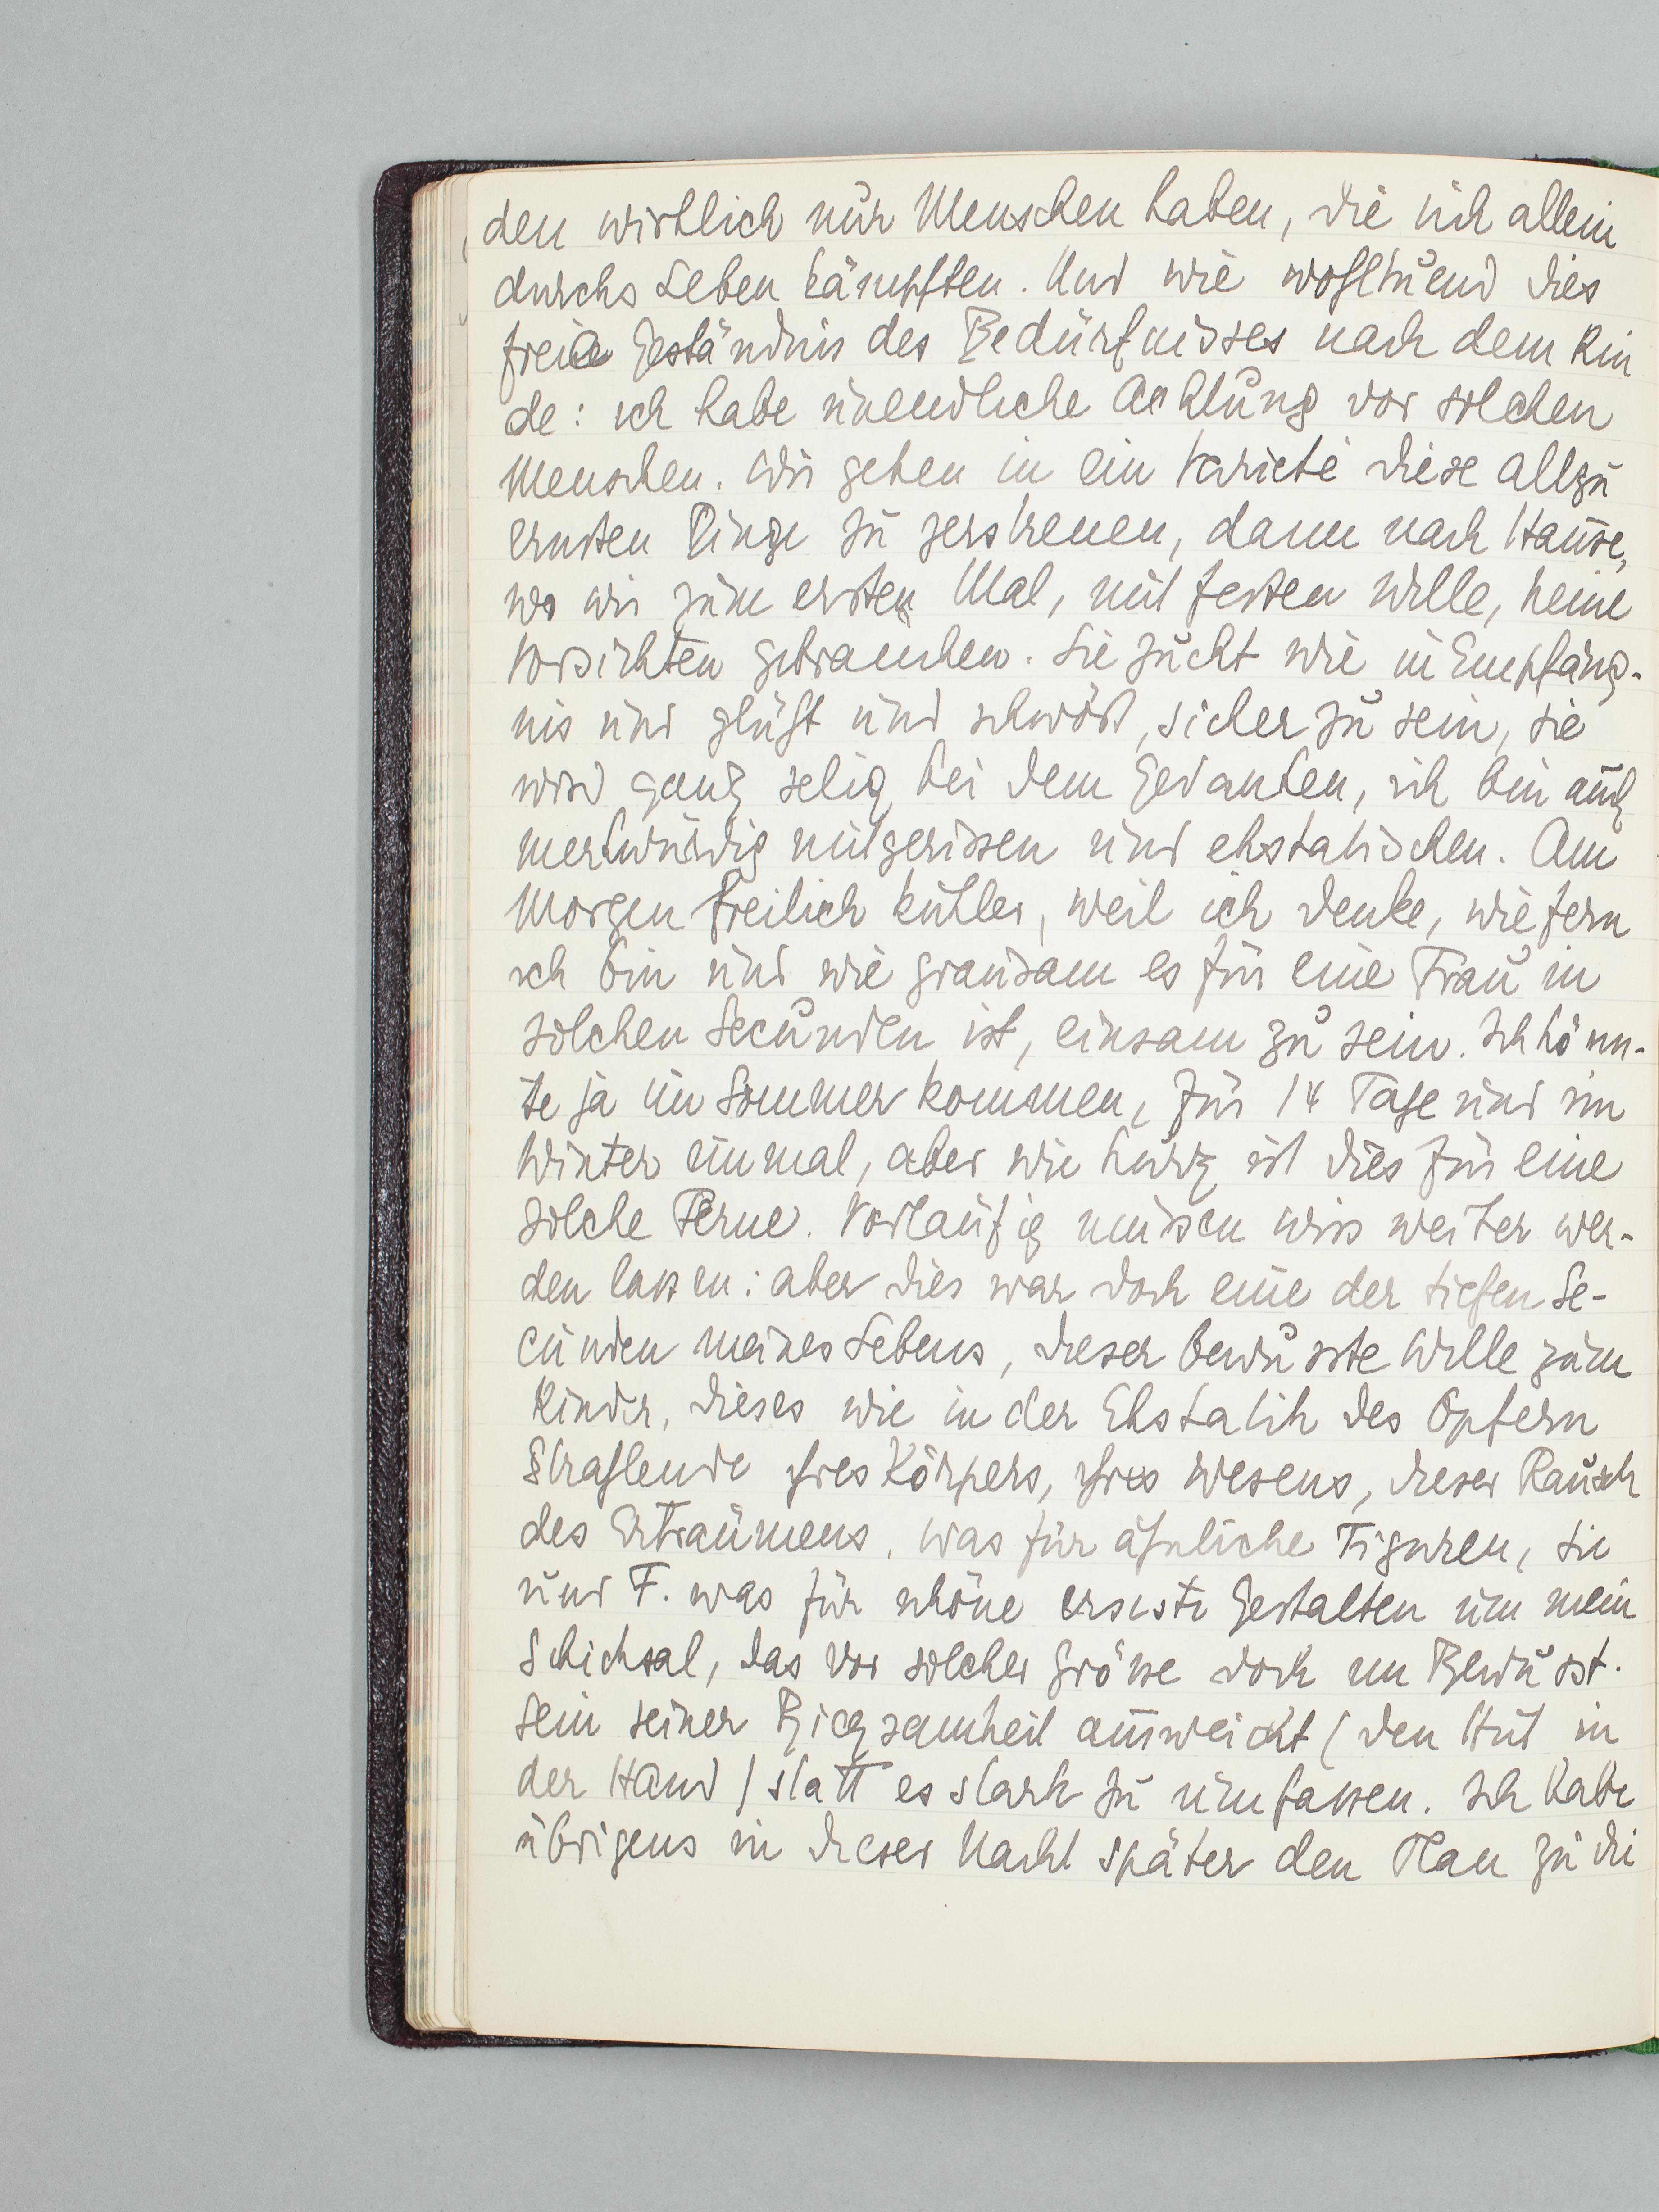 den wirklich nur Menschen haben, die sich allein
durchs Leben kämpften. Und wie wohltuend dies
freie Geständnis des Bedürfnisses nach dem Kin
de: ich habe unendliche Achtung vor solchen
Menschen. Wir gehen in ein Varieté diese allzu
ernsten Dinge zu zerstreuen, dann nach Hause,
wo wir zum ersten Mal, mit festen Wille, keine
Vorsichten gebrauchen. Sie zuckt wie in Empfäng-
nis und glüht und schwört, sicher zu sein, sie
wird ganz selig bei dem Gedanken, ich bin auch
merkwürdig mitgerissen und ekstatischen. Am
Morgen freilich kühler, weil ich denke, wie fern
ich bin und wie grausam es für eine Frau in
solchen Secunden ist, einsam zu sein. Ich könn-
te ja im Sommer kommen, für 14 Tage und im
Winter einmal, aber wie kurz ist dies für eine
solche Ferne. Vorläufig müssen wirs weiter wer-
den lassen: aber dies war doch eine der tiefen Se-
cunden meines Lebens, dieser bewusste Wille zum
Kinde, dieses wie in der Ekstatik des Opfern
Strahlende ihres Körpers, ihres Wesens, dieser Rausch
des Erträumens. Was für ähnliche Figuren, sie
und F. was für schöne ernste Gestalten um mein
Schicksal, das vor solcher Grösse doch im Bewusst-
sein seiner Biegsamheit ausweicht (den Hut in
der Hand) statt es stark zu umfassen. Ich habe
übrigens in dieser Nacht später den Plan zu die